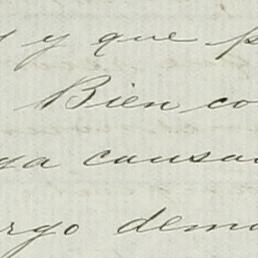 y que
Bien co
causa
rgo dem